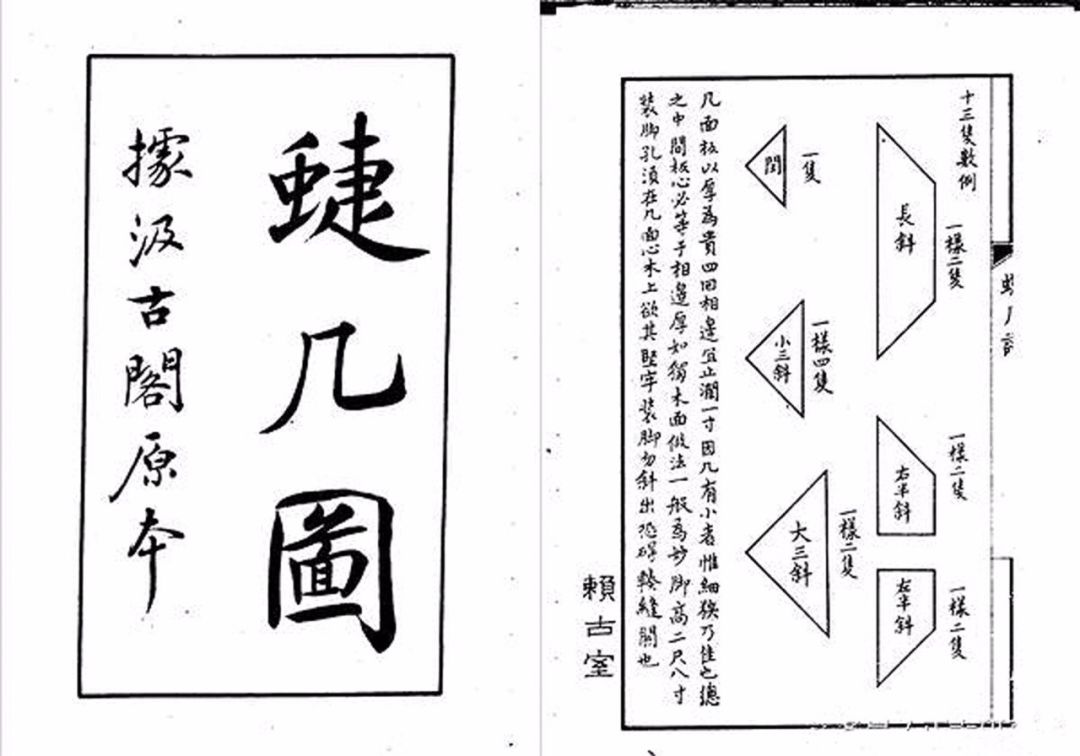 蜨几圖
據汲古閣原本
十三隻數例
長斜
一樣二隻
右半斜
一樣二隻
左半斜
一樣二隻
閏
一隻
小三斜
一樣四隻
大三斜
一樣二隻
几面板以厚為貴四回相邊宜止濶一寸因几有小者惟細狹乃佳也總
之中間板心必等于相邊厚如獨木面做法一般為妙脚高二尺八寸
装脚孔須在几面心木上欲其堅牢装脚勿斜出恐碍輳縫關也
賴古室